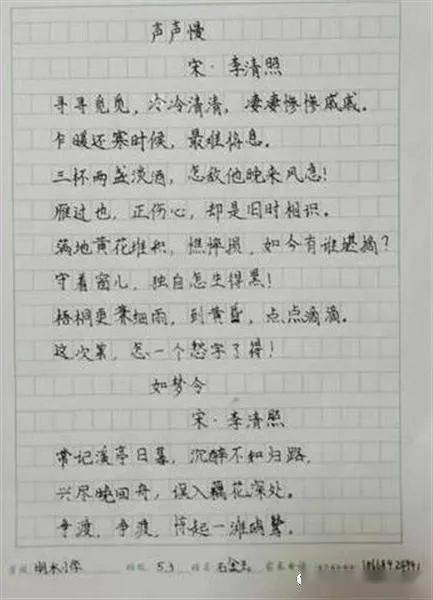 声声慢
宋·李清照
寻寻觅觅，冷冷清清，凄凄惨惨戚戚。
乍暖还寒时候，最难将息。
三杯两盏淡酒，怎敌他晚来风急！
雁过也，正伤心，却是旧时相识。
满地黄花堆积，憔悴损，如今有谁堪摘？
守着窗儿，独自怎生得黑！
梧桐更兼细雨，到黄昏，点点滴滴。
这次第，怎一个愁字了得！
如梦令
宋·李清照
常记溪亭日暮，沉醉不知归路，
兴尽晚回舟，误入藕花深处。
争渡，争渡，惊起一滩鸥鹭。
学校 明水小学 班级 5.3 姓名